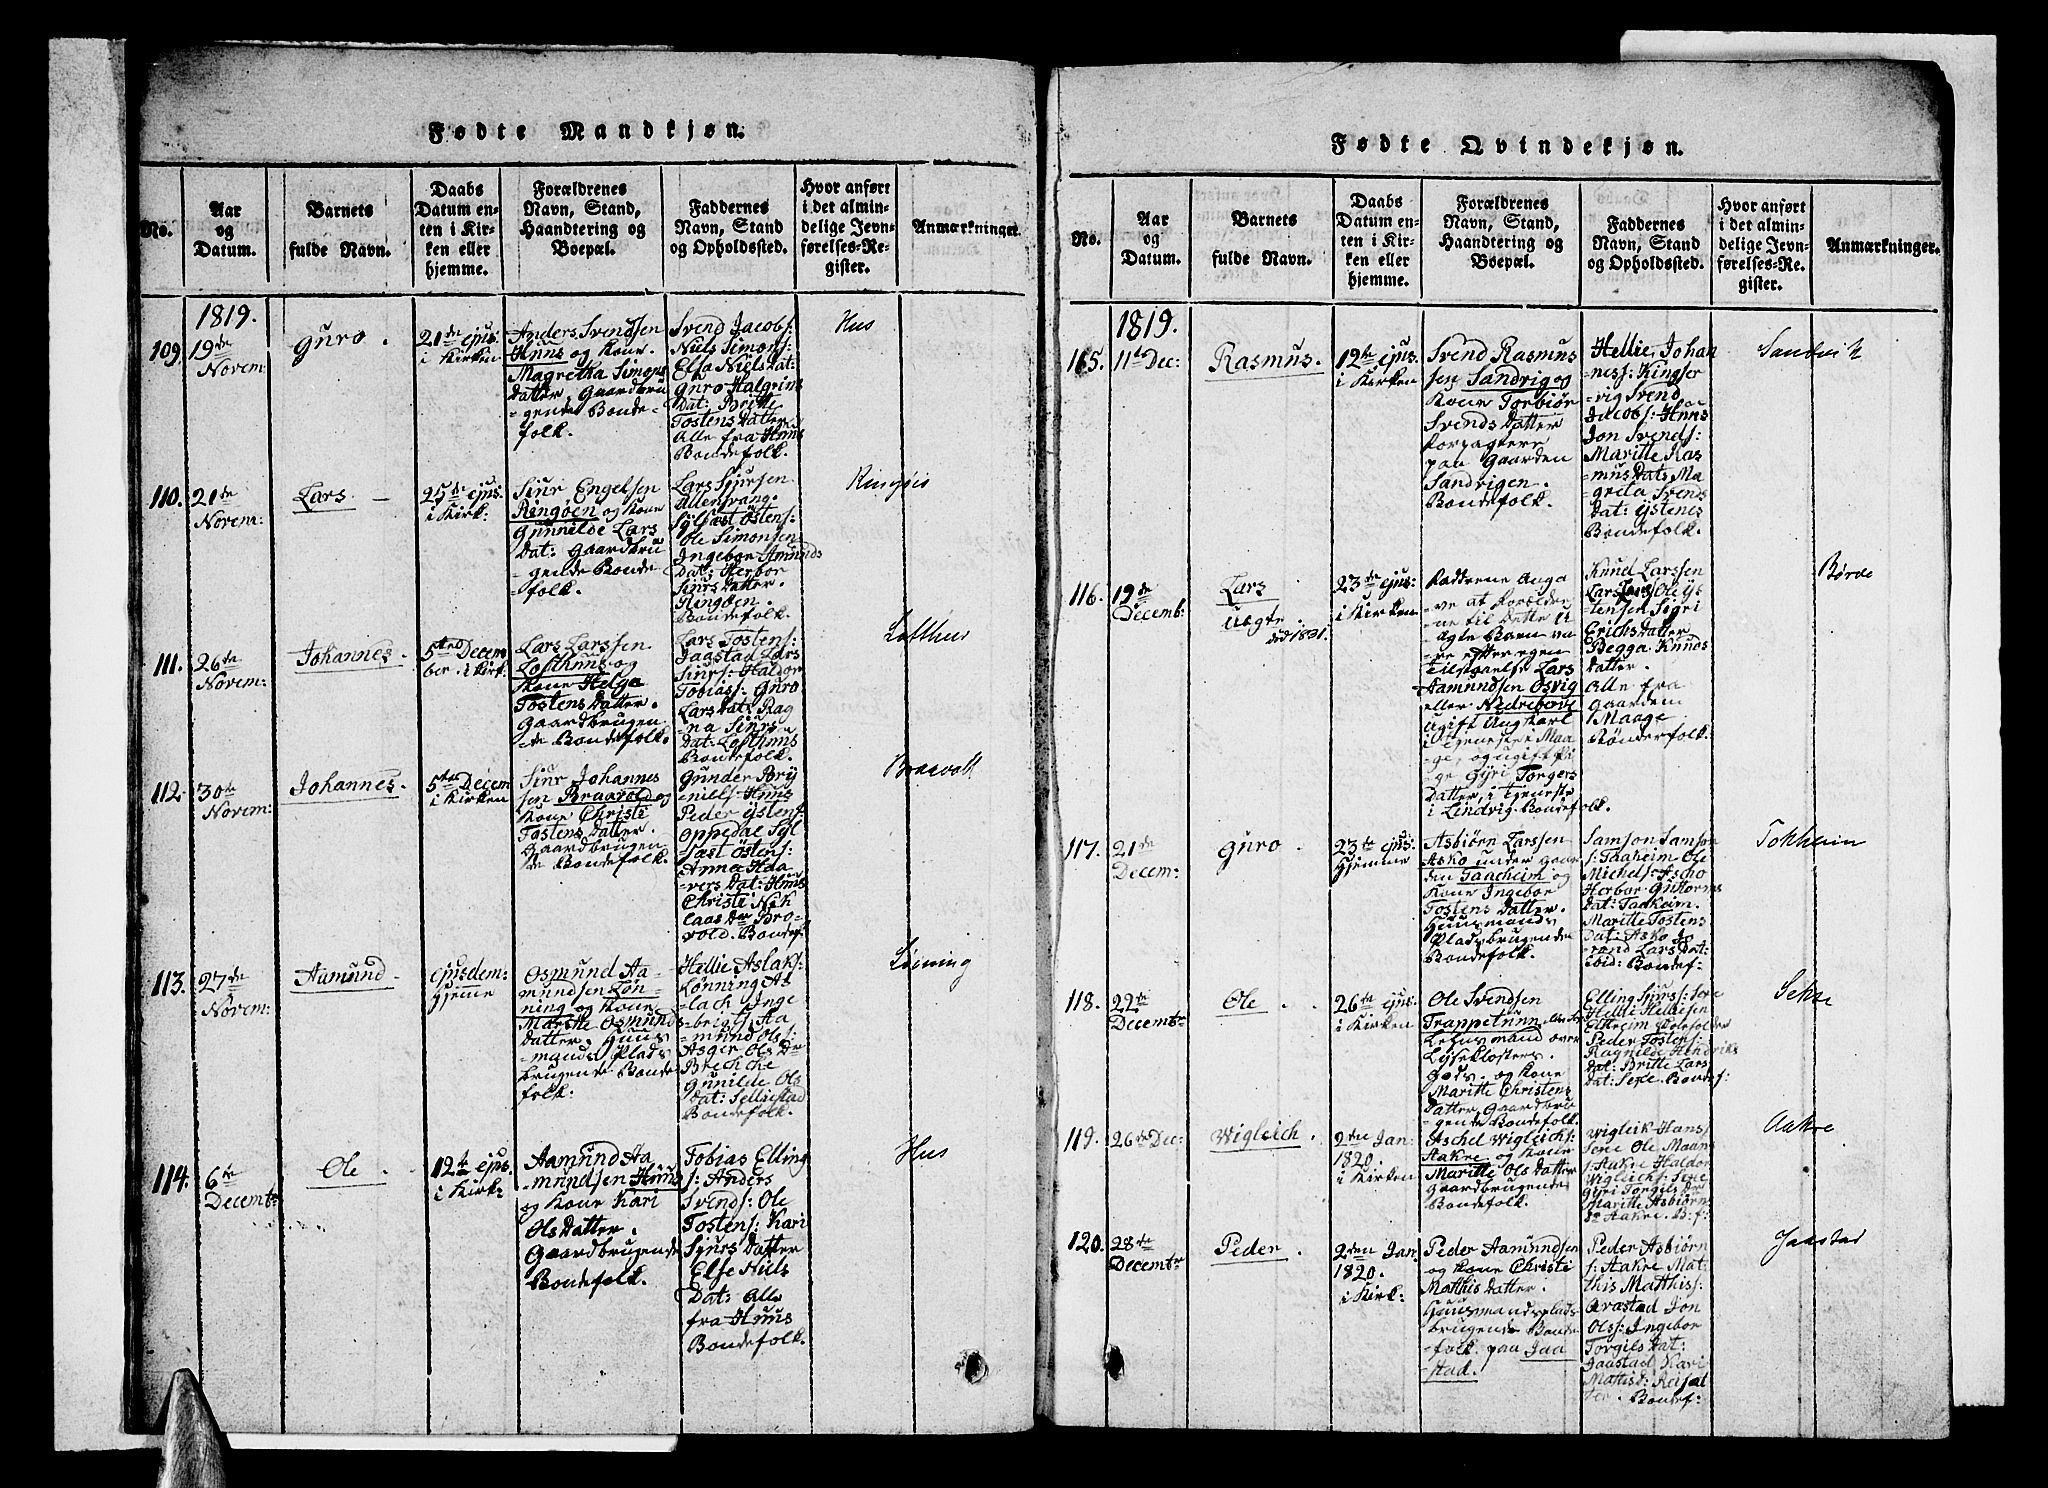 Fødte Mandkjøn.
No.
Aar
og
Datum.
Barnets
fulde Navn.
Daabs
Datum en-
ten i Kir-
ken eller
hjemme.
Forældrenes
Navn, Stand,
Haandtering og
Boepæl.
Faddernes
Navn, Stand
og Opholdssted.
Hvor anført
i det almin-
delige Jevn-
førelses-Re-
gister.
Anmærkninger.
1819.
109.
19de
Novem:
Guro.
21de ejus:
i Kirken
Anders Svendsen
Huus og Kone
Magretha Simons
Datter. Gaardbru
-gende Bonde-
folk.
Svend Jacobs:
Niels Simons:
Elsa Niels Dat:
Guro Halgrins
Dat: Britte
Tostens Datter
Alle fra Huus
Bondefolk.
Hus
110.
21de
Novem:
Lars
25de ejus:
i Kirk:
Siur Engelsen
Ringøen og Kone
Gunnilde Lars
Dat: Gaardbru
-gende Bonde
folk.
Lars Sjursen
Ullensvang.
Sylfast Østens:
Ole Simonsen
Ingebor Amunds
Dat: Herbor
Siurs Datter.
Ringøen.
Bondefolk.
111.
26de
Novem:
Johannes.
5te Decem
ber. i Kirk.
Lars Larssen
Lofthuus og
Kone Helga
Tostens Datter.
Gaardbrugen
de Bondefolk.
Lars Tostens:
Jaastad Lars
Siurs: Haldor
Tobias: Guro
Lars Dat: Rag
na Siurs
Dat: Lofthuus
Bondefolk.
Lofthus
112.
30te
Novem:
Johannes.
5te Decem
i Kirken
Siur Johannes
sen Braavold og
Kone Christi
Tostens Datter.
Gaardbrugen
de Bondefolk.
Gunder Bry
niells: Huus
Peder Ystens:
Oppedal Syl
fast Østens:
Anna Haa
vers Dat: Huus
Christi Nik
laas Dr Bro-
vold. Bondef:
Braavold
113.
27de
Novem:
Aamund
ejusdem:
hjemme
Osmund Aa-
mundsen Løn-
ning og Kone
Maritte Osmunds
Datter. Huus
mands Plads
brugende Bonde
folk:
Hellie Aslaks:
Lønning As
lach Inge
brigts: Aa
mund Ols:
Asger Ols Dr
Brechche
Gunilde Ols
Dat: Sellestad
Bondefolk.
Lønning
114.
6te
Decemb:
Ole
12te ejus:
i Kirk:
Aamund Aa
mundsen Huus
og Kone Kari
Ols Datter.
Gaardbrugende
Bondefolk.
Tobias Elling
s: Anders
Svends: Ole
Tostens: Kari
Sjurs Datter
Else Niels
Dat: Alle
fra Huus
Bondefolk.
Hus
Fødte Qvindekjøn.
No.
Aar
og
Datum.
Barnets
fulde Navn.
Daabs
Datum en-
ten i Kir-
ken eller
hjemme.
Forældrenes
Navn, Stand,
Haandtering og
Boepæl.
Faddernes
Navn, Stand
og Opholdssted.
Hvor anført
i det almin-
delige Jevn-
førelses-Re-
gister.
Anmærkninger.
1819.
115.
11te Dec:
Rasmus.
12te ejus:
i Kirken
Svend Rasmus
sen Sandvig og
Kone Torbiør
Svends Datter
Forpagtere
paa Gaarden
Sandvigen.
Bondefolk.
Hellie Johan
ness: Kingser
-vig Svend
Jacobs: Huus
Jon Svends:
Maritte Ras
mus Dat: Ma
-greta Svends
Dat: Ystenes
Bondefolk.
Sandvik
116.
19de
Decemb:
Lars
Uægte.
død 1821.
23de ejus:
i Kirken
Fadderne Anga
ve at Foræld
ne til Dette U
ægte Barn va
re efter egen
Tilstaaelse Lars
Aamundsen Osvig
eller Nedrebøve
Ugift Ungkarl
i Tjeneste i Maa
-ge, og ugift Pi
ge Gyri Torgers
Datter, i Tjeneste
i Lindvig. Bondefolk.
Knud Larssen
Lars Ole Ys
tensen Sigri
Erichs Datter
Begga Knuds
Datter.
Alle fra
Gaarden
Maage.
Bønderfolk.
Børve
117.
21de
Decem:
Guro
23de ejus:
hjemme
Asbiørn Larssen
Asko under Gaar
den Taaheim og
Kone Ingebor
Tostens Datter.
Huusmands
Pladsbrugende
Bondefolk.
Samson Samson
s: Taaheim Ole
Michels: Ascho
Herbor Guttorms
Dat: Taaheim.
Maritte Tostens
Dat: Asko Jo
rend Lars Dat:
ibid: Bondef:
Tokheim
118.
22de
Decembr
Ole
26de ejus:
i Kirken
Ole Svendsen
Trappetuun
Lehnsmand over
Lyseklosters
Gods. og Kone
Maritte Christens
Datter Gaardbru
gende Bondefolk.
Elling Sjurs: Sexe
Helde Hellesen
Elkheim
Peder Tostens:
Ragnilde Hendriks
Dat: Britte Lars
Dat: Sexe. Bondef:
Sekse
119.
26de Dec:
Wigleich.
2den Jan:
1820.
i Kirken
Aschel Wigleichs:
Aakre og Kone
Maritte Ols Datter
Gaardbrugende
Bondefolk.
Wigleik Hans
Sexe Ole Maan
s: Aakre Haldor
Wigleichs: Sexe
Gyri Torgils Dr
Maritte Asbiørn
Dr Aakre. B:f:
Aakre
120.
28de
Decembr
Peder.
2den Jan
1820.
i Kirk:
Peder Aamundsen
og Kone Christi
Matthis Datter.
Huusmandsplads
brugende Bonde
-folk. paa Jaa
stad.
Peder Asbiørn
s: Aakre Mat
this Matthis:
Arastad Jon
Ols: Ingebor
Torgils Dat:
Jaastad Kari
Bondef:
Jaastad